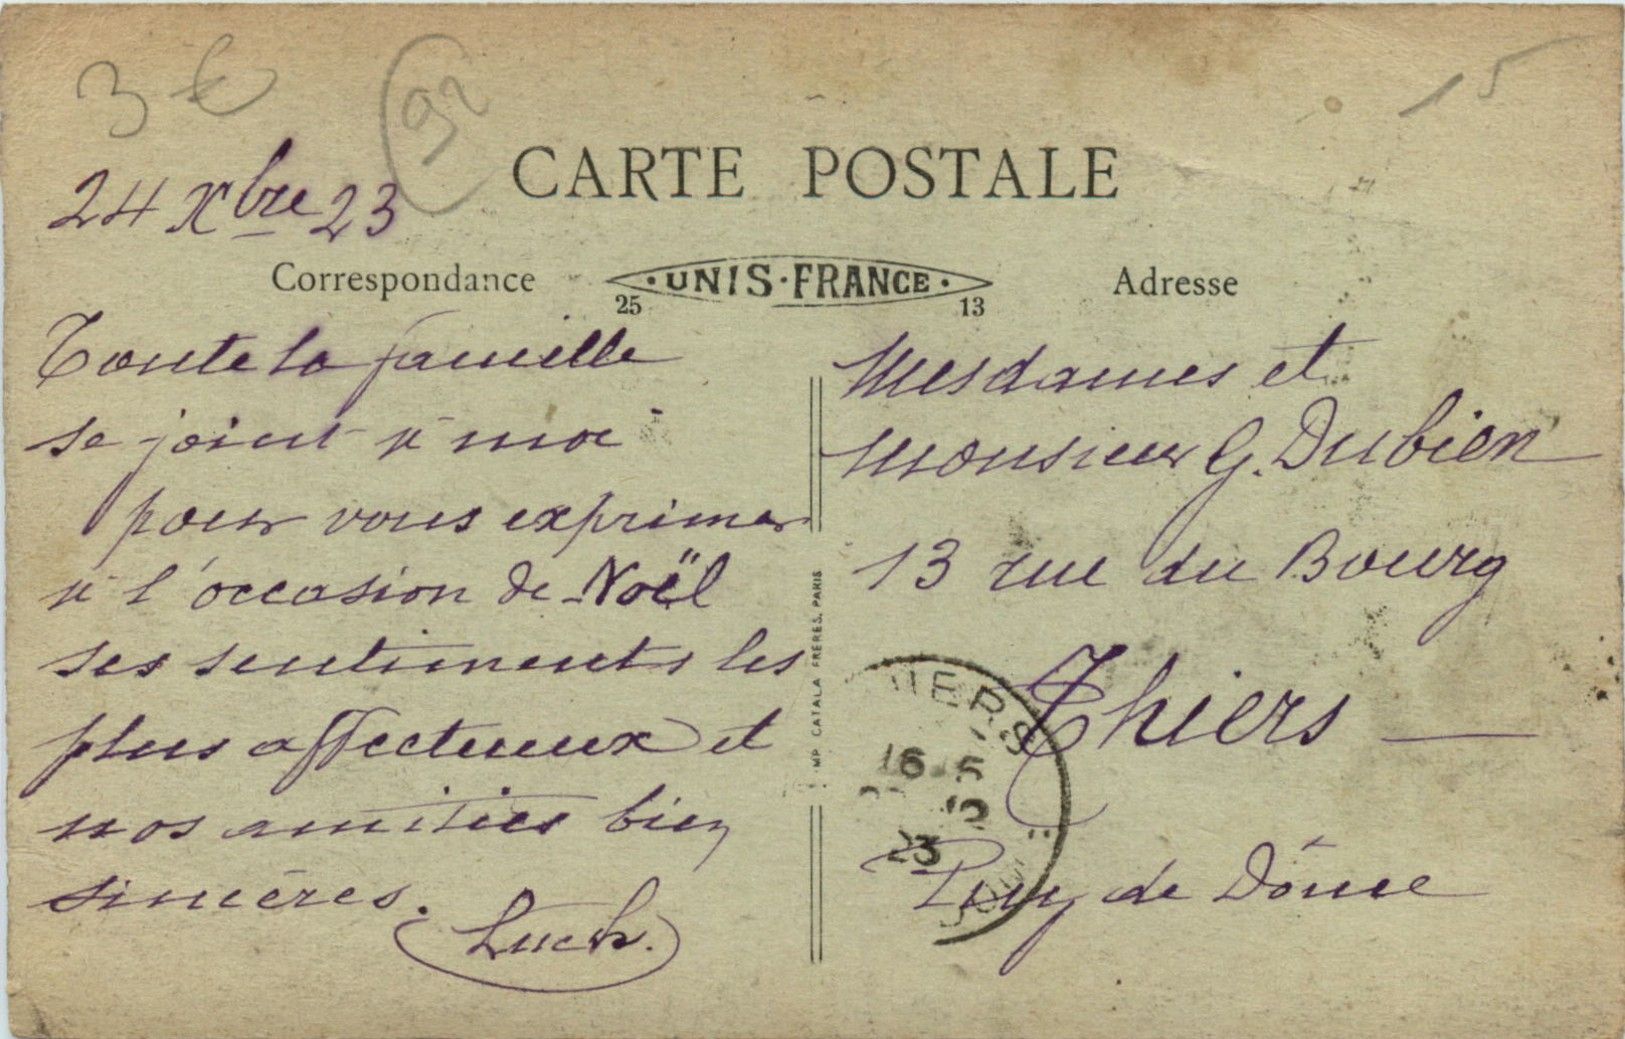 3 €
92
15
CARTE POSTALE
24 Xbre 23
Correspondance
·UNIS·FRANCE·
25 13
Adresse
Toute la famille
se joint à moi
pour vous exprimer
à l'occasion de Noël
ses sentiments les
plus affectueux et
nos amitiés bien
sincères.
Luch.
IMP. CATALA FRÈRES, PARIS
Mesdames et
Monsieur G. Dubien
13 rue du Bourg
Thiers
Puy de Dôme
HIERS
16
12
23